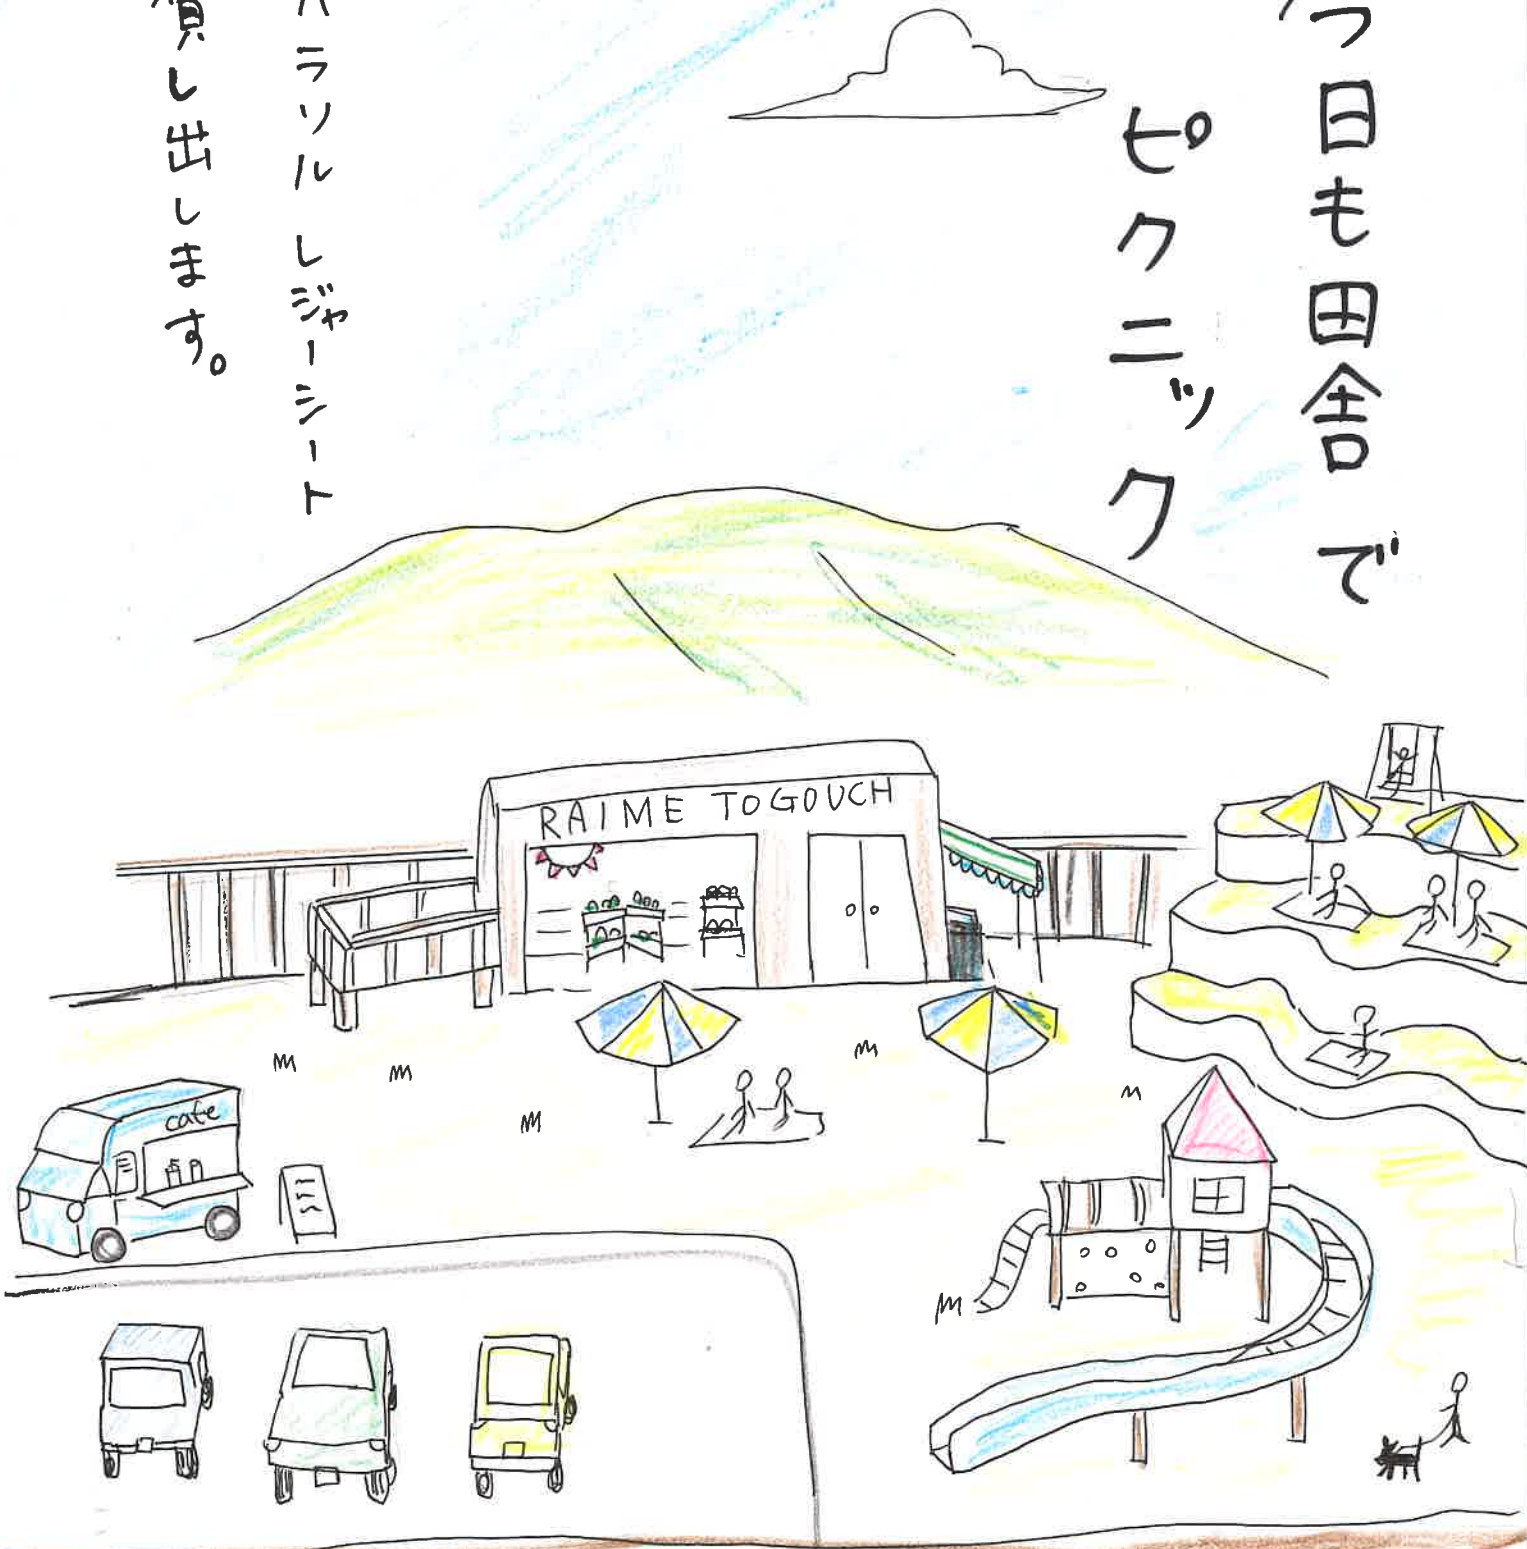 今日も田舎で
ピクニック
パラソル レジャーシート
貸し出します。
RAIME TOGOUCH
cafe